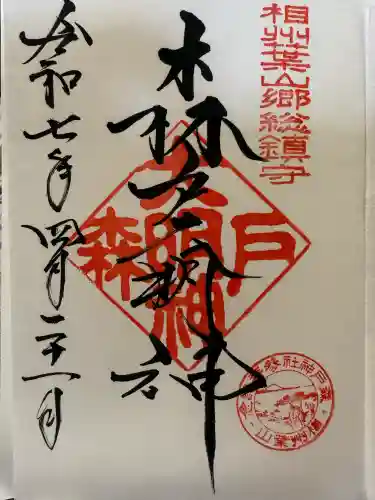 相州葉山郷総鎮守
森戸大明神
森戸大明神
令和七年四月二十一日